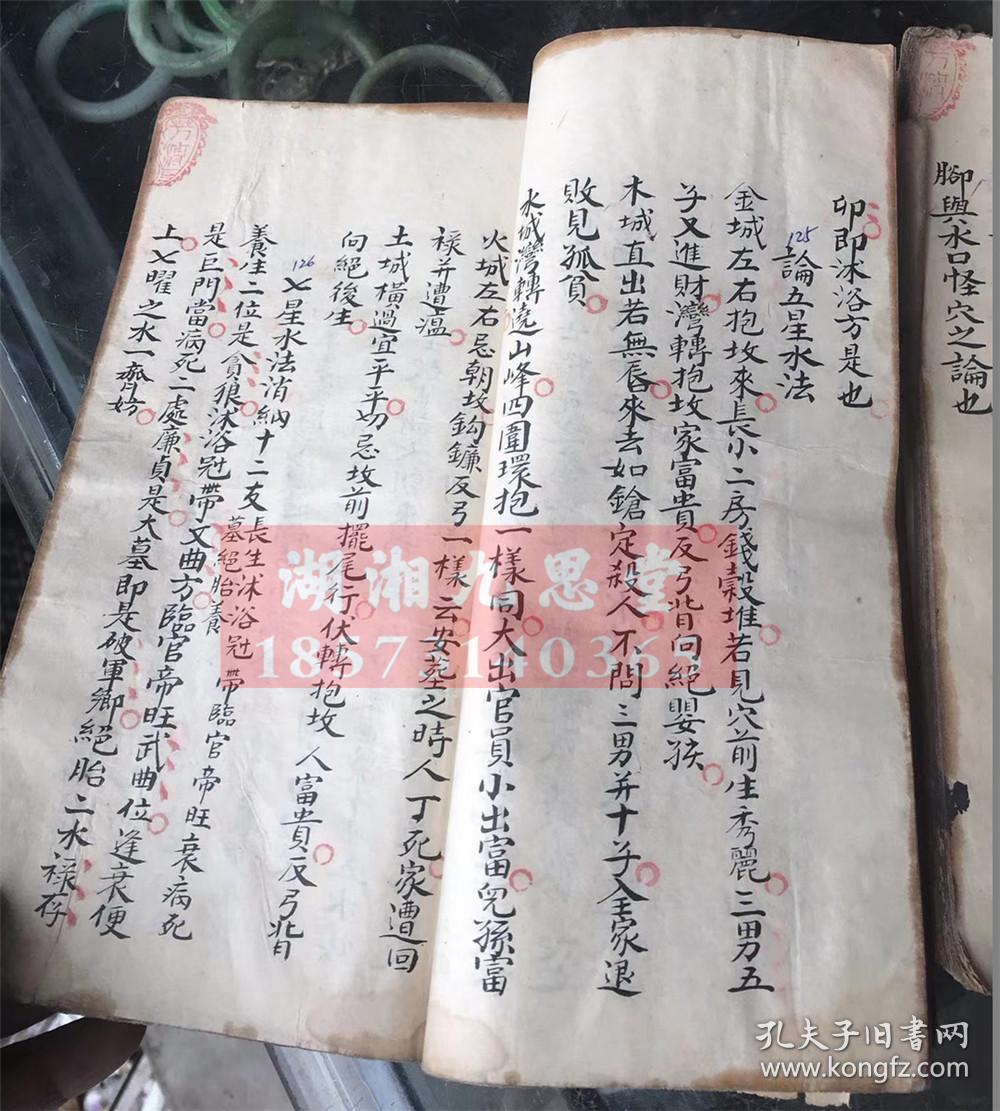 腳與水口怪穴之論也
卯即沐浴方是也
125
論五星水法
金城左右抱坟來長小二房錢穀堆若見穴前生秀麗三男五
子又進財灣轉抱坟家富貴反弓背向絕嬰孩
木城直出若無唇來去如鎗定殺人不問三男并十子全家退
敗見孤貧
水城灣轉遶山峰四圍環抱一樣同大出官員小出富兒孫富
火城左右忌朝坟鈎鐮反弓一樣云安葬之時人丁死家遭回
祿并遭瘟
土城橫過宜平平切忌坟前擺尾行伏轉抱坟人富貴反弓背
向絕後生
126
七星水法消納十二支長生沐浴冠帶臨官帝旺衰病死
墓絕胎養
養生二位是貪狼沐浴冠帶文曲方臨官帝旺武曲位逢衰便
是巨門當病死二處廉貞是大墓即是破軍鄉絕胎二水祿存
上七曜之水一齊妨
湖湘九思堂
孔夫子旧书网
www.kongfz.com